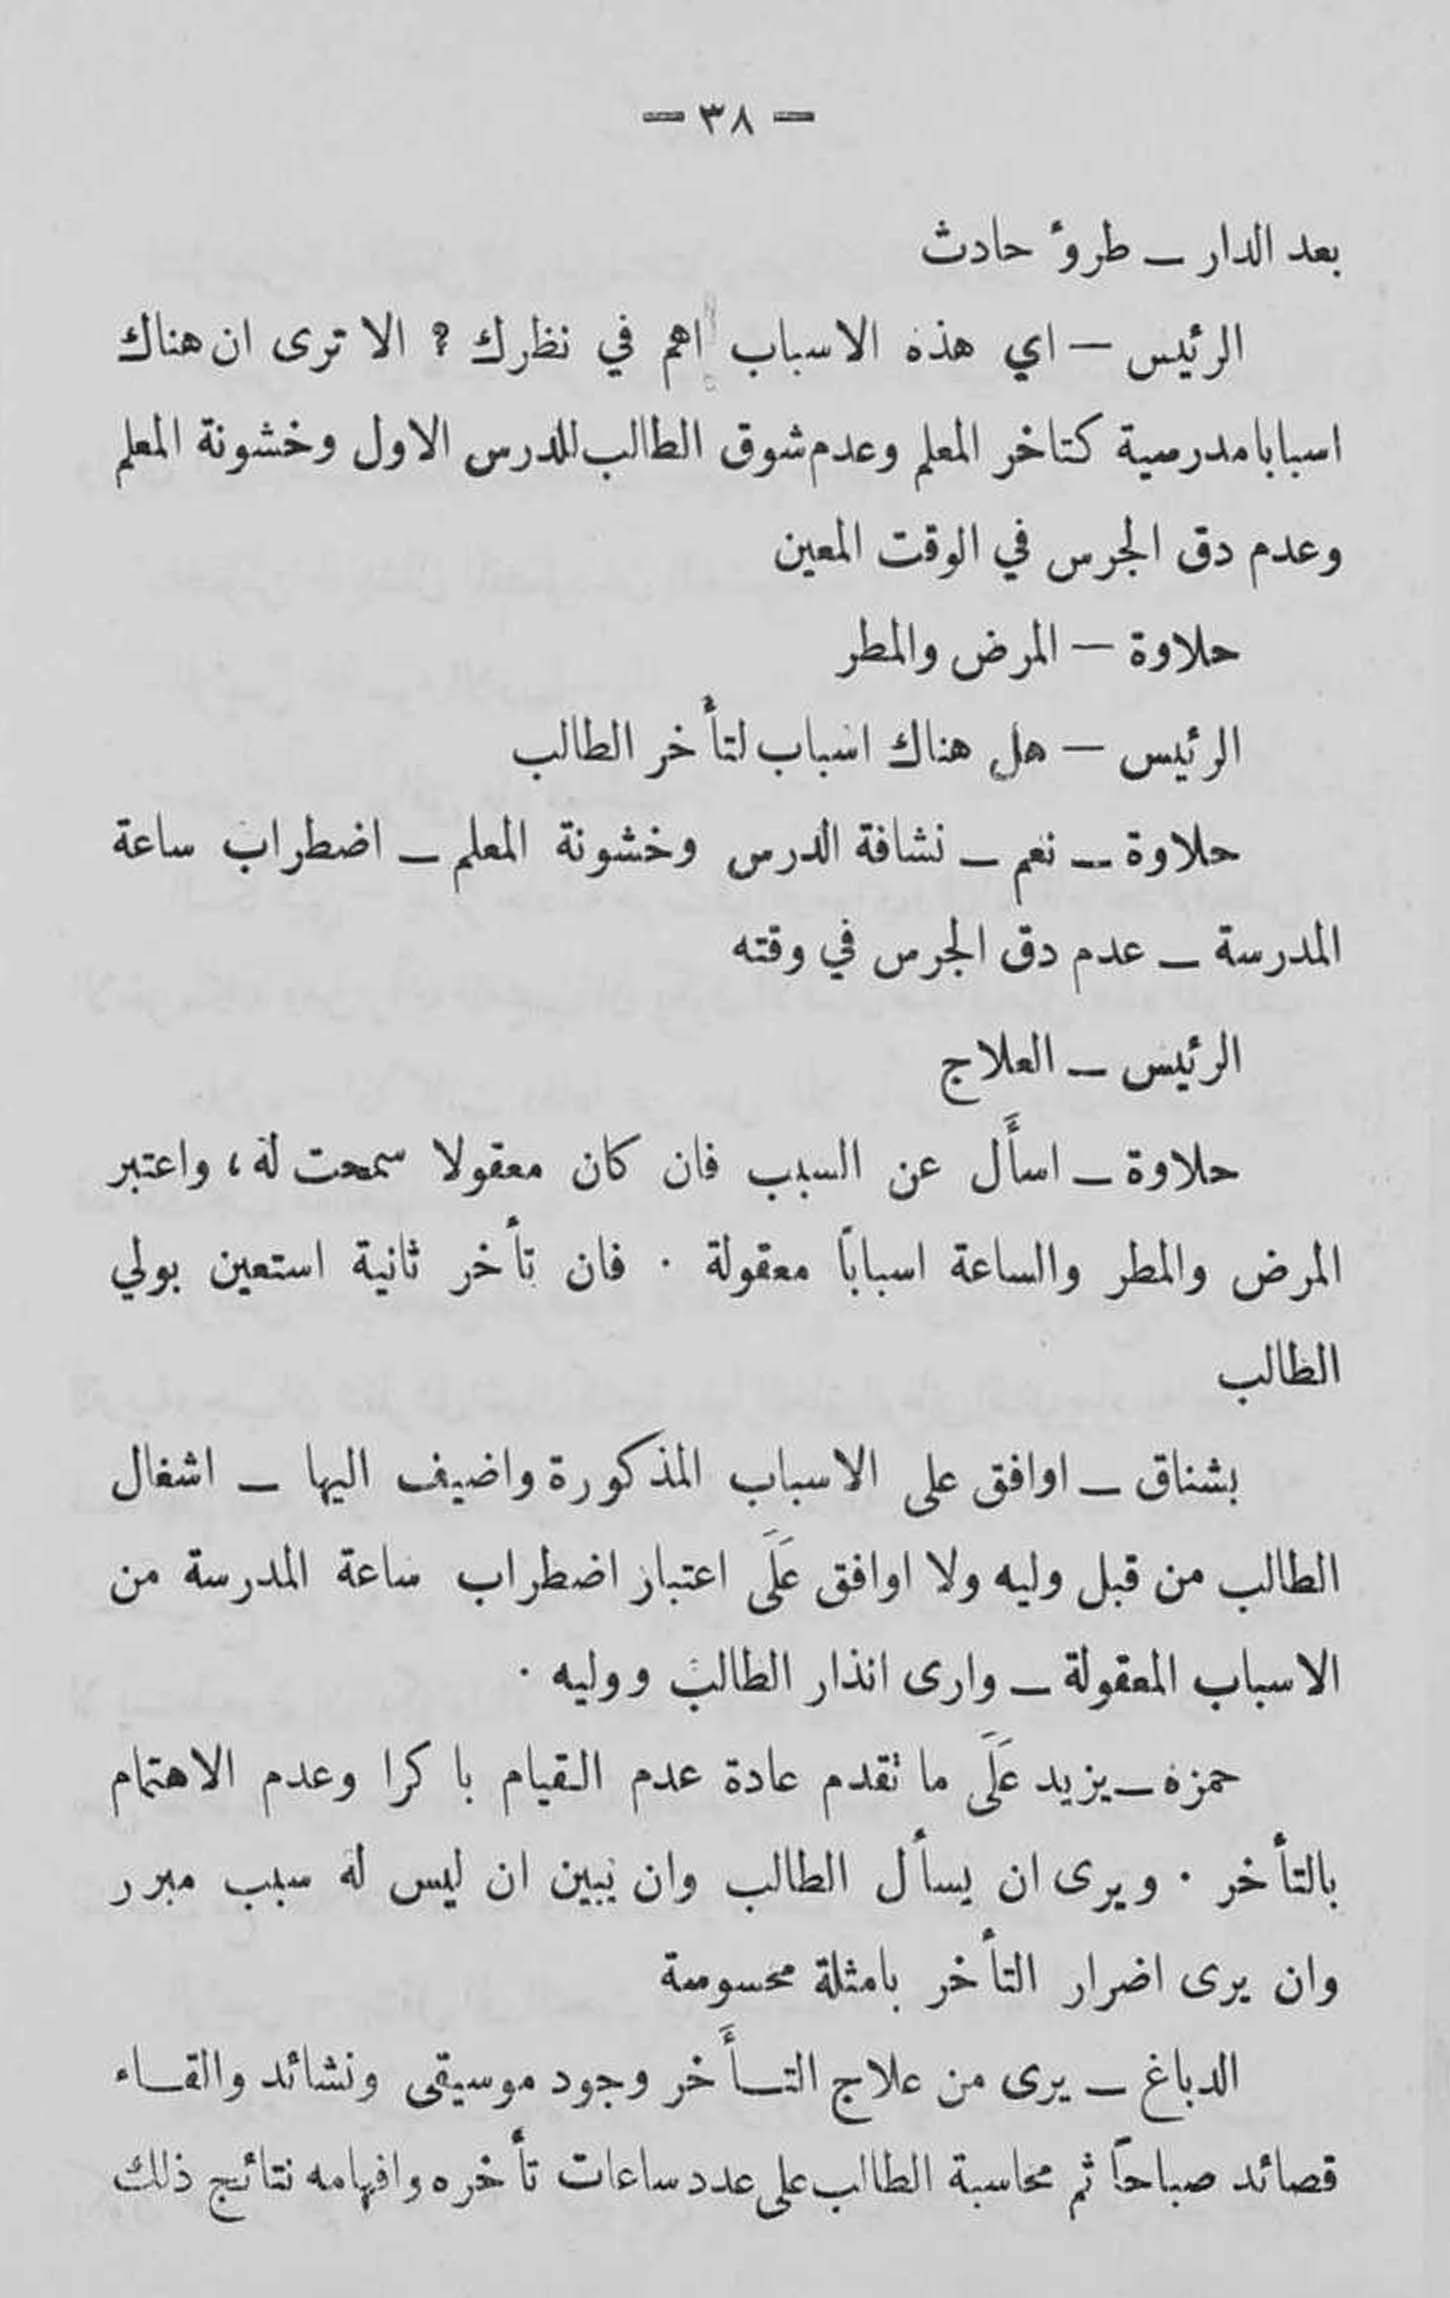 — ٣٨ —
بعد الدار — طروءُ حادث
الرئيس — اي هذه الاسباب اهم في نظرك ؟ الا ترى ان هناك
اسبابا مدرسية كتاخر المعلم وعدم شوق الطالب للدرس الاول وخشونة المعلم
وعدم دق الجرس في الوقت المعين
حلاوة — المرض والمطر
الرئيس — هل هناك اسباب لتأخر الطالب
حلاوة — نعم — نشافة الدرس وخشونة المعلم — اضطراب ساعة
المدرسة — عدم دق الجرس في وقته
الرئيس — العلاج
حلاوة — اسأَل عن السبب فان كان معقولا سمحت له ، واعتبر
المرض والمطر والساعة اسبابًا معقولة . فان تأخر ثانية استعين بولي
الطالب
بشناق — اوافق على الاسباب المذكورة واضيف اليها — اشغال
الطالب من قبل وليه ولا اوافق عَلَى اعتبار اضطراب ساعة المدرسة من
الاسباب المعقولة — وارى انذار الطالب ووليه .
حمزه — يزيد عَلَى ما تقدم عادة عدم القيام باكرا وعدم الاهتمام
بالتأخر . ويرى ان يسأل الطالب وان يبين ان ليس له سبب مبرر
وان يرى اضرار التأخر بامثلة محسوسة
الدباغ — يرى من علاج التـأَخر وجود موسيقى ونشائد والقـاء
قصائد صباحاً ثم محاسبة الطالب على عدد ساعات تأخره وافهامه نتائج ذلك